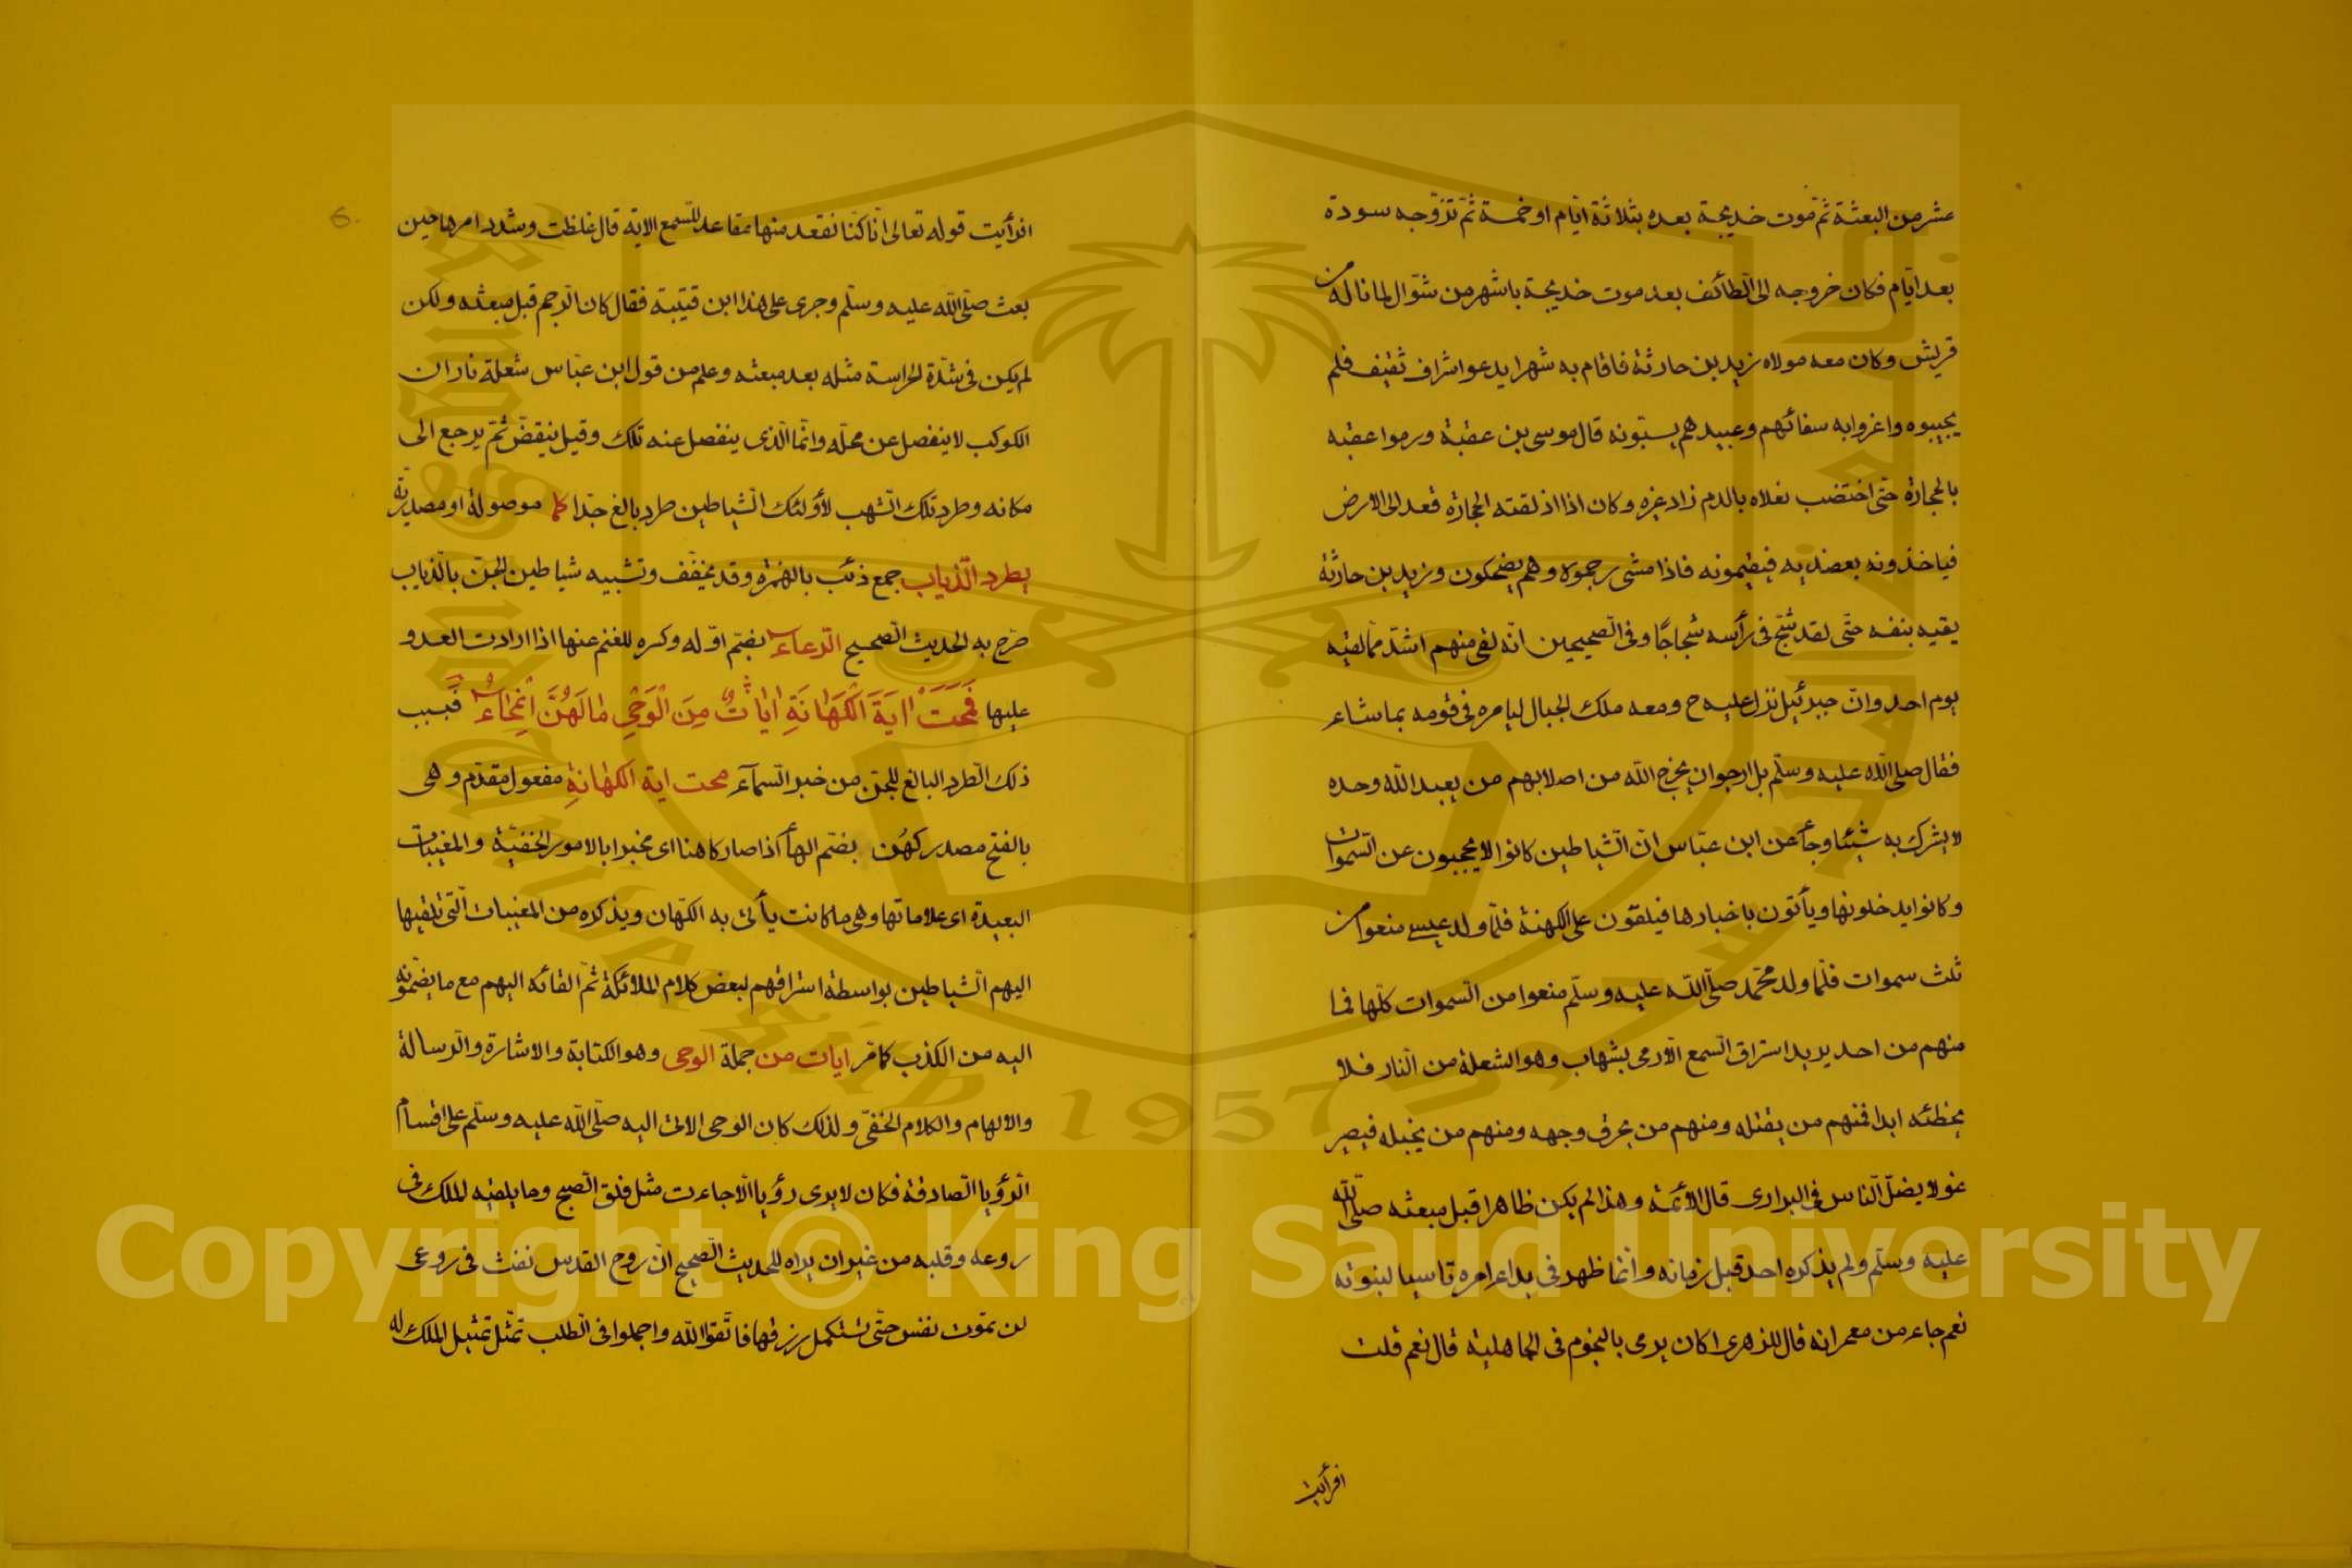 عشر من البعثة ثمّ موت خديجة بعده بثلاثة ايّام او خمسة ثمّ تزوّجه سودة
بعد ايّام فكان خروجه الى الطائف بعد موت خديجة باشهر من شوّال لما ناله من
قريش وكان معه مولاه زيد بن حارثة فاقام به شهرا يدعو اشراف ثقيف فلم
يجيبوه واغروا به سفائهم وعبيدهم يسبّونه قال موسى بن عقبة ورموا عقبه
بالحجارة حتّى اختضب نعلاه بالدم زاد غيره وكان اذا اذلقته الحجارة قعد الى الارض
فياخذونه بعضديه فيقيمونه فاذا مشى رجموه وهم يضحكون وزيد بن حارثة
يقيه بنفسه حتّى لقد شجّ فى رأسه شجاجًا وفى الصّحيحين انّه لقى منهم اشدّ ممّا لقيه
يوم احد وانّ جبرئيل نزل عليه ح ومعه ملك الجبال ليامره فى قومه بما شاء
فقال صلى اللّه عليه وسلّم بل ارجو ان يخرج اللّه من اصلابهم من يعبد اللّه وحده
لا يشرك به شيئا وجأ عن ابن عبّاس انّ الشّياطين كانوا لا يحجبون عن السّموات
وكانوا يدخلونها ويأتون باخبارها فيلقون على الكهنة فلمّا ولد عيسى منعوا من
ثلث سموات فلمّا ولد محمّد صلّى اللّه عليه وسلّم منعوا من السّموات كلّها فما
منهم من احد يريد استراق السّمع الّا رمى بشهاب وهو الشعلة من النّار فلا
يخطئه ابدا فمنهم من يقتله ومنهم من يحرق وجهه ومنهم من يخبله فيصير
غولا يضلّ النّاس فى البرارى قال الأئمّة وهذا لم يكن ظاهرا قبل مبعثه صلّى اللّه
عليه وسلّم ولم يذكره احد قبل زمانه وانّما ظهر فى بداء امره تاسيسا لنبوّته
نعم جاء من معمر انه قال للزهرى اكان يرمى بالنجوم فى الجاهلية قال نعم قلت
افرأيت
افرأيت قوله تعالى انّا كنّا نقعد منها مقاعد للسّمع الاية قال غلظت وشدد امرها حين
بعث صلّى اللّه عليه وسلّم وجرى على هذا ابن قتيبة فقال كان الرّجم قبل مبعثه ولكن
لم يكن فى شدّة الحراسة مثله بعد مبعثه وعلم من قول ابن عبّاس شعلة نار ان
الكوكب لا ينفصل عن محلّه وانّما الّذى ينفصل عنه تلك وقيل ينقضّ ثمّ يرجع الى
مكانه وطرد تلك الشّهب لأولئك الشّياطين طرد بالغ جدّا كما موصولة او مصدريّة
يطرد الذّياب جمع ذئب بالهمزة وقد يخفّف وتشبيه شياطين الجنّ بالذياب
صّرح به الحديث الصّحيح الرّعاء بضمّ اوّله وكسره للغنم عنها اذا ارادت العدو
عليها فَمَحَتْ اٰيَةَ الْكَهَانَةِ اٰيَاتٌ مِنَ الْوَحْىِ مَا لَهُنَّ انْمِحَاءُ فبسبب
ذلك الطّرد البالغ للجنّ من خبر السّمآء محت اية الكهانةِ مفعول مقدّم وهى
بالفتح مصدر كهُن بضمّ الهأ اذا صار كاهنا اى مخبرا بالامور الخفيّة والمغيبات
البعيدة اى علاماتها وهى ما كانت يأتى به الكهّان ويذكره من المغيبات الّتى تلقيها
اليهم الشّياطين بواسطة استراقهم لبعض كلام الملائكة ثمّ القائه اليهم مع ما يضمّونه
اليه من الكذب كامّر ايات من جملة الوحى وهو الكتابة والاشارة والرّسالة
والالهام والكلام الخفىّ ولذلك كان الوحى الاتى اليه صلّى اللّه عليه وسلّم على اقسام
الرّؤيا الصّادقة فكان لا يرى رؤيا الّا جاءت مثل فلق الصّبح وما يلقيه الملك فى
روعه وقلبه من غير ان يراه للحديث الصّحيح انّ روح القدس نفث فى روعى
لن تموت نفس حتّى تستكمل رزقها فاتّقوا اللّه واجملوا فى الطّلب تمثل تمثيل الملك له
Copyright © King Saud University
1957